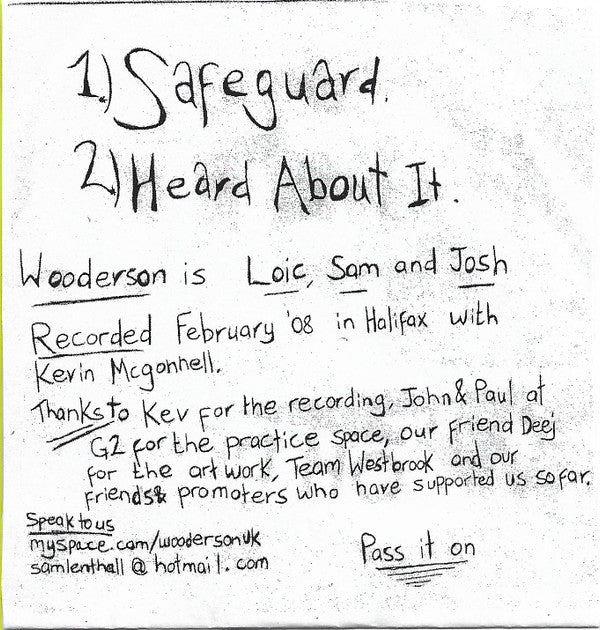 1.) Safeguard.
2.) Heard About It.
Wooderson is Loic, Sam and Josh
Recorded February '08 in Halifax with
Kevin Mcgonnell.
Thanks to Kev for the recording, John & Paul at
G2 for the practice space, our friend Deej
for the art work, Team Westbrook and our
friends & promoters who have supported us so far.
Speak to us
myspace.com/woodersonuk
samlenthall@hotmail.com
Pass it on